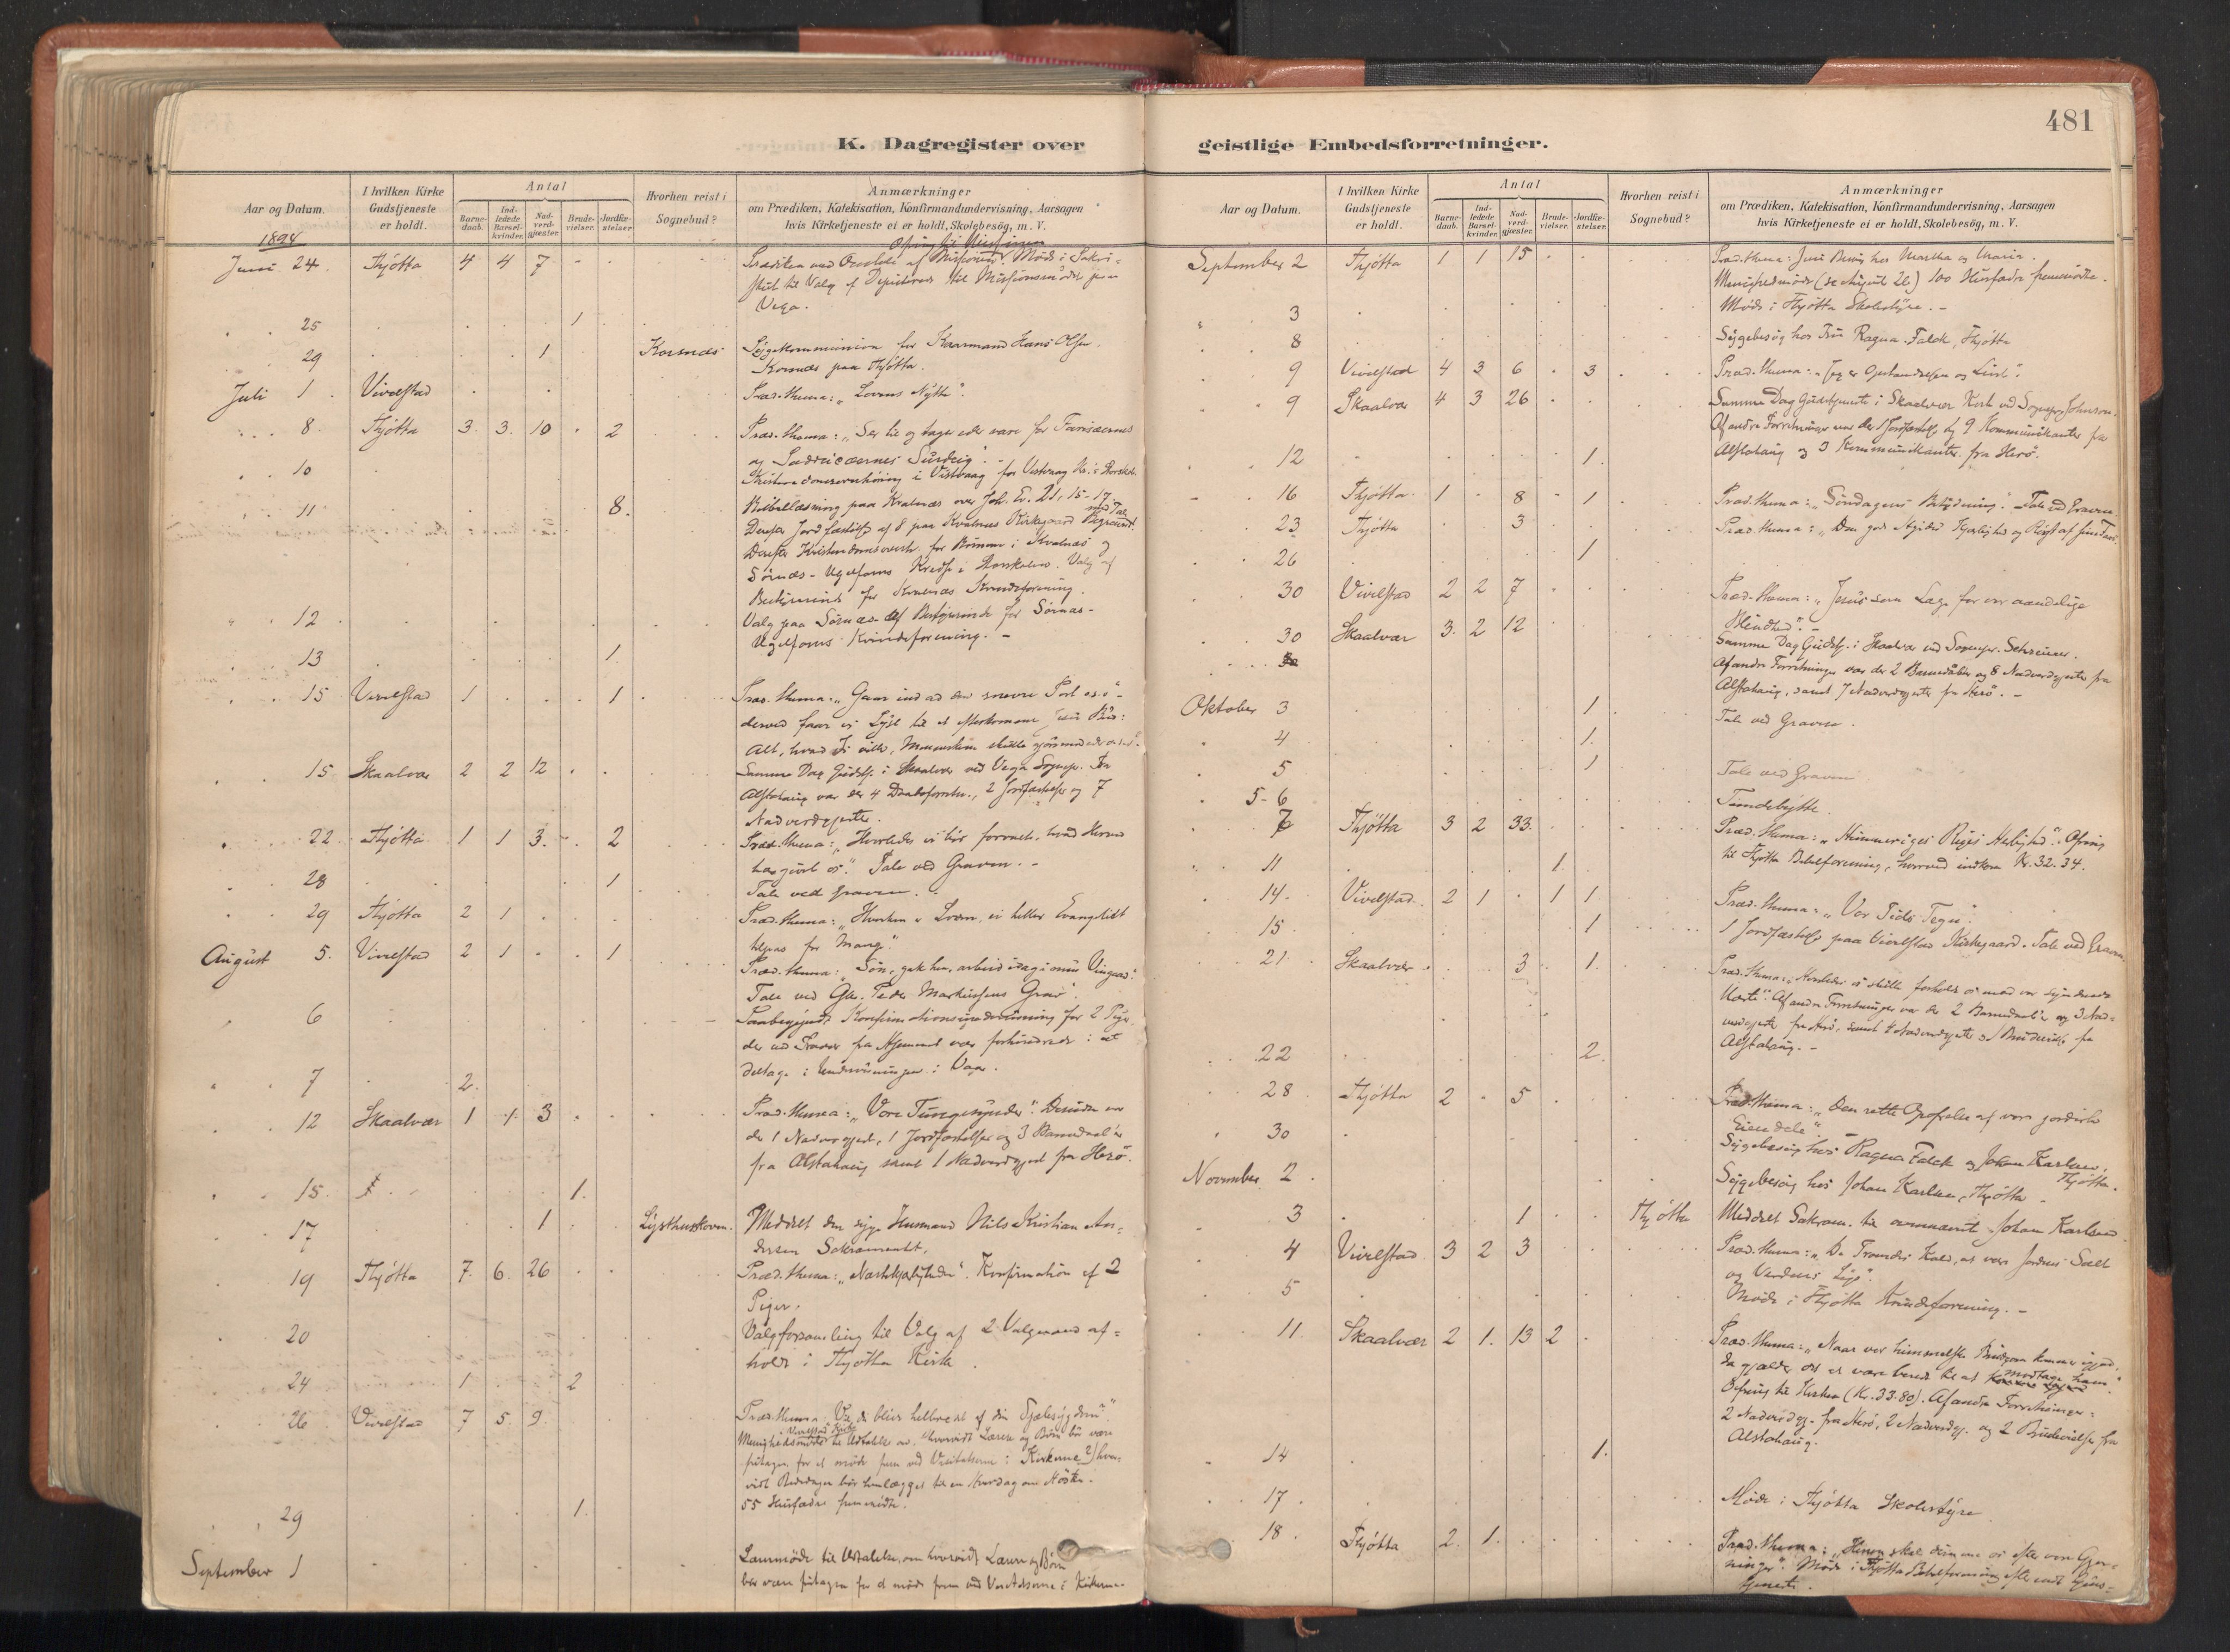 481
K. Dagregister over geistlige Embedsforretninger.
Aar og Datum. I hvilken Kirke Gudstjeneste er holdt. Antal Barne-daab. Ind-ledede Barsel-kvinder. Nad-verd-gjæster. Brude-vielser. Jordfæ-stelser. Hvorhen reist i Sognebud? Anmærkninger om Prædiken, Katekisation, Konfirmandundervisning, Aarsagen hvis Kirketjeneste ei er holdt, Skolebesøg, m. V.
1894
Ofring til Missionen
Juni 24. Thjøtta 4 4 7 Prædiken Missionen. Møde i Sakri-
sti til Valg af Deputerede til Missionsmødet paa
Vega.
25 1
29 1 Kornæs Sygekommunion for Kaarmand Hans Olsen,
Kornæs paa Thjøtta.
Juli 1 Vevelstad Præd. thema: „Lovens Nytte".
8. Thjøtta 3. 3. 10 2 Præd. thema: „Ser til og tager eder vare for Farisæernes
og Sadducæernes Surdeig".
10 Kristendomsoverhøring i Vistvaag for Vistvaag Kr. i Storskolen
11 8. Bibellæsning paa Kvalnæs over Joh. Ev. 21, 15-17.
Derefter Jordfæstelse af 8 paa Kvalnæs Kirkegaard med Tale
Derefter Kristendomsoverh. for Børnene i Kvalnæs og
Sørnæs- Kreds i Storskolen. Valg af
Bestyrerinde for Kvalnæs Kvindeforening.
12 Valg paa Sørnæs af Bestyrerinde for Sørnæs-
Kvindeforening. -
13 1.
15 Vevelstad 1 1 Præd. thema: „Gaar ind ad den snevre Port
derved faar vi Lyst til at efterkomme Jesu Bud:
Alt, hvad I ville, Menneskene skulle gjøre mod eder
15 Skaalvær 2 2 12 Samme Dag Gudstj. i Skaalvær ved Vega Sognepr. Fra
Alstahaug var der 4 2 Jordfæstelser og 7
Nadverdgjester.
22 Thjøtta 1 1 3. 2 Præd. thema: „Hvorledes vi bør forvalte, hvad Herren
har givet os". Tale ved Graven. -
28 1 Tale ved Graven.
29 Thjøtta 2 1 Præd. thema: „Hverken Loven, ei heller Evangeliet
for Mange".
August 5. Vevelstad 2 1 1 Præd. thema: „Søn, gak hen, arbeid idag i min Vingaard".
Tale ved Peder Markussens Grav.
6 Paabegyndt Konfirmationsundervisning for 2 Piger
der ved fra Hjemmet var forhindrede i at
deltage i Undervisningen i Vaar.
7 2.
12 Skaalvær 1 1 3 Præd. thema: „Vore Tungesynder". Desuden var
der 1 Nadverdgjest, 1 Jordfæstelse og 3 Barnedaab
fra Alstahaug samt 1 Nadverdgjest fra Herø.
15. 1.
17 1 Lysthuskoven. Meddelt den syge Husmand Nils Kristian An-
dersen Sakramentet.
19 Thjøtta 7. 6. 26 Præd. thema: „Næstekjærligheden". Konfirmation af 2
Piger.
20 Valgforsamling til Valg af 2 Valgmænd af-
holdt i Thjøtta Kirke.
24 1 2
26 Vevelstad 7 5. 9 Præd. thema: Vil du blive helbredet af din Sjælesygdom"
Vevelstad Kirke
Menighedsmøde til Udtalelse om hvorvidt Lærere og Børn bør være
pligtige for at møde frem ved Visitatserne i Kirkerne 2) hvor-
vidt bør henlægges til en Hverdag om Høsten.
55 Husfædre fremmødte.
29 1.
September 1 Lærermøde til Udtalelse, om hvorvidt Lærere og Børn
bør være pligtige for at møde frem ved Visitatserne i Kirkerne.
September 2 Thjøtta 1 1 15 Præd. thema: Jesu Besøg hos Martha og Maria.
Menighedsmøde (se August 26) 100 Husfædre fremmødte.
3 Møde i Thjøtta Skolestyre. -
8 Sygebesøg hos Fru Ragna Falck, Thjøtta
9 Vevelstad 4 3 6 3 Præd. thema: „Jeg er Opstandelsen og Livet".
9 Skaalvær 4 3 26 Samme Dag Gudstjeneste i Skaalvær Kirke ved Sognepr. Johnson.
Af andre Forretninger var der Jordfæstelse og 9 Kommunikanter fra
12 1. Alstahaug og 3 Kommunikanter fra Herø.
16 Thjøtta 1 8 1 Præd. thema: „Søndagens Betydning". - Tale ved Graven.
23 Thjøtta 3 Præd. thema: „Den
26 1
30 Vevelstad 2 2 7 Præd. thema: „Jesus som Læge for vor aandelige
Blindhed". -
30 Skaalvær 3. 2 12 Samme Dag Gudstj. i Skaalvær ved Sognepr. Schreiner.
Af andre Forretninger var der 2 Barnedåber og 8 Nadverdgjester fra
Alstahaug, samt 7 Nadverdgjester fra Herø. -
Oktober 3 1. Tale ved Graven.
4 1.
5 1 Tale ved Graven
5-6 Tiendebytte
7 Thjøtta 3 2 33. Præd. thema: „Himmeriges Riges Herlighed". Ofring
til Thjøtta Bibelforening, hvorved indkom Kr. 32.34.
11 1.
14. Vevelstad 2 1 1 1 Præd. thema: „Vor Tids Tegn".
15. 1 1 Jordfæstelse paa Vevelstad Kirkegaard. Tale ved Graven.
21 Skaalvær 3 1. Præd. thema: „Hvorledes vi skulle forholde os med vor syndende
Næste". Af andre Forretninger var der 2 Barnedaab og 3 Nad-
verdgjester fra Herø, samt 4 Nadverdgjester og 1 Brudevielse fra
Alstahaug. -
22 2.
28 Thjøtta 2 5 Præd. thema: „Den rette Opofrelse af vore jordiske
Eiendele".
30 Sygebesøg hos Ragna Falck og Johan Karlsen,
Thjøtta.
November 2 Sygebesøg hos Johan Karlsen, Thjøtta
3 1 Thjøtta Meddelt Sakram. til ovennævnt Johan Karlsen
4 Vevelstad 3 2 3 Præd. thema: „De Troendes Kald, at være Jordens Salt
og Verdens Lys".
5 Møde i Thjøtta Kvindeforening. -
11 Skaalvær 2 1. 13 2 Præd. thema: „Naar vor himmelske Brudgom kommer igjen,
da gjælder det at være beredt til at modtage ham".
Ofring til Kirken (Kr. 33.80). Af andre Forretninger:
2 Nadverdgj. fra Herø, 2 Nadverdgj. og 2 Brudevielser fra
Alstahaug.
14 1.
17 Møde i Thjøtta Skolestyre
18 Thjøtta 2. 1. Præd. thema: „Herren skal dømme os efter vore Gjer-
ninger". Møde i Thjøtta Bibelforening efter endt Guds-
tjeneste.